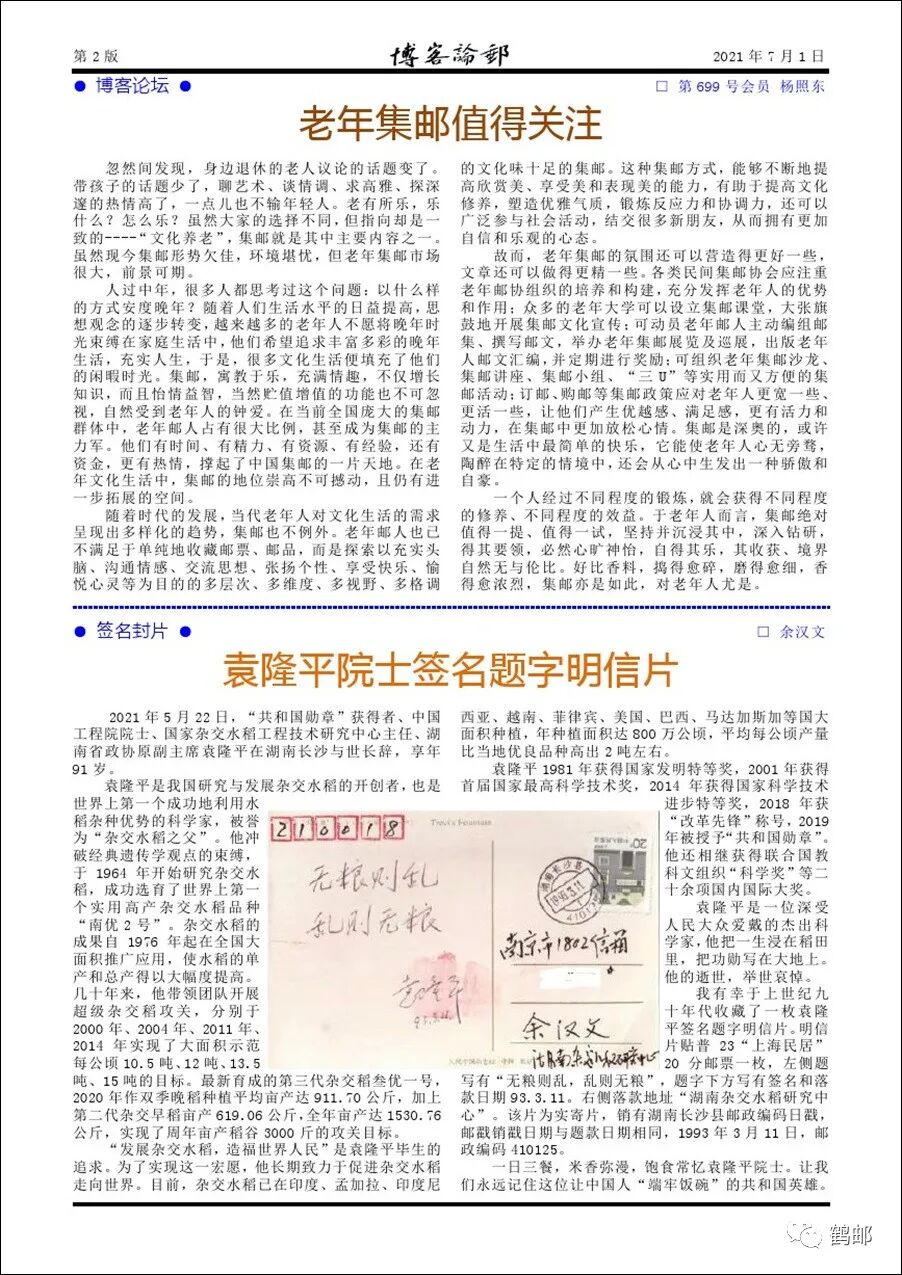 第 2 版
博客論郵
2021 年 7 月 1 日
● 博客论坛 ●
□ 第 699 号会员 杨照东
老年集邮值得关注
忽然间发现，身边退休的老人议论的话题变了。
带孩子的话题少了，聊艺术、谈情调、求高雅、探深
邃的热情高了，一点儿也不输年轻人。老有所乐，乐
什么？怎么乐？虽然大家的选择不同，但指向却是一
致的----“文化养老”，集邮就是其中主要内容之一。
虽然现今集邮形势欠佳，环境堪忧，但老年集邮市场
很大，前景可期。
人过中年，很多人都思考过这个问题：以什么样
的方式安度晚年？随着人们生活水平的日益提高，思
想观念的逐步转变，越来越多的老年人不愿将晚年时
光束缚在家庭生活中，他们希望追求丰富多彩的晚年
生活，充实人生，于是，很多文化生活便填充了他们
的闲暇时光。集邮，寓教于乐，充满情趣，不仅增长
知识，而且怡情益智，当然贮值增值的功能也不可忽
视，自然受到老年人的钟爱。在当前全国庞大的集邮
群体中，老年邮人占有很大比例，甚至成为集邮的主
力军。他们有时间、有精力、有资源、有经验，还有
资金，更有热情，撑起了中国集邮的一片天地。在老
年文化生活中，集邮的地位崇高不可撼动，且仍有进
一步拓展的空间。
随着时代的发展，当代老年人对文化生活的需求
呈现出多样化的趋势，集邮也不例外。老年邮人也已
不满足于单纯地收藏邮票、邮品，而是探索以充实头
脑、沟通情感、交流思想、张扬个性、享受快乐、愉
悦心灵等为目的的多层次、多维度、多视野、多格调
的文化味十足的集邮。这种集邮方式，能够不断地提
高欣赏美、享受美和表现美的能力，有助于提高文化
修养，塑造优雅气质，锻炼反应力和协调力，还可以
广泛参与社会活动，结交很多新朋友，从而拥有更加
自信和乐观的心态。
故而，老年集邮的氛围还可以营造得更好一些，
文章还可以做得更精一些。各类民间集邮协会应注重
老年邮协组织的培养和构建，充分发挥老年人的优势
和作用；众多的老年大学可以设立集邮课堂，大张旗
鼓地开展集邮文化宣传；可动员老年邮人主动编组邮
集、撰写邮文，举办老年集邮展览及巡展，出版老年
人邮文汇编，并定期进行奖励；可组织老年集邮沙龙、
集邮讲座、集邮小组、“三 U”等实用而又方便的集
邮活动；订邮、购邮等集邮政策应对老年人更宽一些、
更活一些，让他们产生优越感、满足感，更有活力和
动力，在集邮中更加放松心情。集邮是深奥的，或许
又是生活中最简单的快乐，它能使老年人心无旁骛，
陶醉在特定的情境中，还会从心中生发出一种骄傲和
自豪。
一个人经过不同程度的锻炼，就会获得不同程度
的修养、不同程度的效益。于老年人而言，集邮绝对
值得一提、值得一试，坚持并沉浸其中，深入钻研，
得其要领，必然心旷神怡，自得其乐，其收获、境界
自然无与伦比。好比香料，捣得愈碎，磨得愈细，香
得愈浓烈，集邮亦是如此，对老年人尤是。
● 签名封片 ●
□ 余汉文
袁隆平院士签名题字明信片
2021 年 5 月 22 日，“共和国勋章”获得者、中国
工程院院士、国家杂交水稻工程技术研究中心主任、湖
南省政协原副主席袁隆平在湖南长沙与世长辞，享年
91 岁。
袁隆平是我国研究与发展杂交水稻的开创者，也是
世界上第一个成功地利用水
稻杂种优势的科学家，被誉
为“杂交水稻之父”。他冲
破经典遗传学观点的束缚，
于 1964 年开始研究杂交水
稻，成功选育了世界上第一
个实用高产杂交水稻品种
“南优 2 号”。杂交水稻的
成果自 1976 年起在全国大
面积推广应用，使水稻的单
产和总产得以大幅度提高。
几十年来，他带领团队开展
超级杂交稻攻关，分别于
2000 年、2004 年、2011 年、
2014 年实现了大面积示范
每公顷 10.5 吨、12 吨、13.5
吨、15 吨的目标。最新育成的第三代杂交稻叁优一号，
2020 年作双季晚稻种植平均亩产达 911.70 公斤，加上
第二代杂交早稻亩产 619.06 公斤，全年亩产达 1530.76
公斤，实现了周年亩产稻谷 3000 斤的攻关目标。
“发展杂交水稻，造福世界人民”是袁隆平毕生的
追求。为了实现这一宏愿，他长期致力于促进杂交水稻
走向世界。目前，杂交水稻已在印度、孟加拉、印度尼
210018
Trevi's Fountain
无粮则乱
乱则无粮
袁隆平
93.3.11.
20
湖南长沙县
1993.3.11
南京市1802信箱
余汉文
湖南杂交水稻研究中心
西亚、越南、菲律宾、美国、巴西、马达加斯加等国大
面积种植，年种植面积达 800 万公顷，平均每公顷产量
比当地优良品种高出 2 吨左右。
袁隆平 1981 年获得国家发明特等奖，2001 年获得
首届国家最高科学技术奖，2014 年获得国家科学技术
进步特等奖，2018 年获
“改革先锋”称号，2019
年被授予“共和国勋章”。
他还相继获得联合国教
科文组织“科学奖”等二
十余项国内国际大奖。
袁隆平是一位深受
人民大众爱戴的杰出科
学家，他把一生浸在稻田
里，把功勋写在大地上。
他的逝世，举世哀悼。
我有幸于上世纪九
十年代收藏了一枚袁隆
平签名题字明信片。明信
片贴普 23“上海民居”
20 分邮票一枚，左侧题
写有“无粮则乱，乱则无粮”，题字下方写有签名和落
款日期 93.3.11。右侧落款地址“湖南杂交水稻研究中
心”。该片为实寄片，销有湖南长沙县邮政编码日戳，
邮戳销戳日期与题款日期相同，1993 年 3 月 11 日，邮
政编码 410125。
一日三餐，米香弥漫，饱食常忆袁隆平院士。让我
们永远记住这位让中国人“端牢饭碗”的共和国英雄。
鹤邮